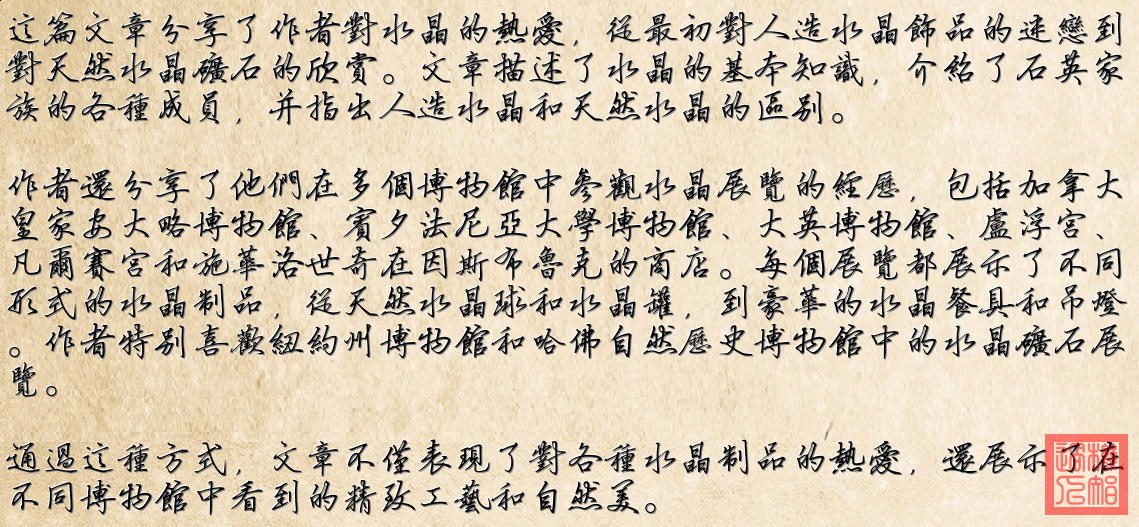 這篇文章分享了作者對水晶的熱愛，從最初對人造水晶飾品的迷戀到
對天然水晶礦石的欣賞。文章描述了水晶的基本知識，介紹了石英家
族的各種成員，并指出人造水晶和天然水晶的區别。
作者還分享了他們在多個博物館中參觀水晶展覽的經歷，包括加拿大
皇家安大略博物館、賓夕法尼亞大學博物館、大英博物館、盧浮宮、
凡爾賽宮和施華洛世奇在因斯布魯克的商店。每個展覽都展示了不同
形式的水晶制品，從天然水晶球和水晶罐，到豪華的水晶餐具和吊燈
。作者特别喜歡紐約州博物館和哈佛自然歷史博物館中的水晶礦石展
覽。
通過這種方式，文章不僅表現了對各種水晶制品的熱愛，還展示了在
不同博物館中看到的精致工藝和自然美。